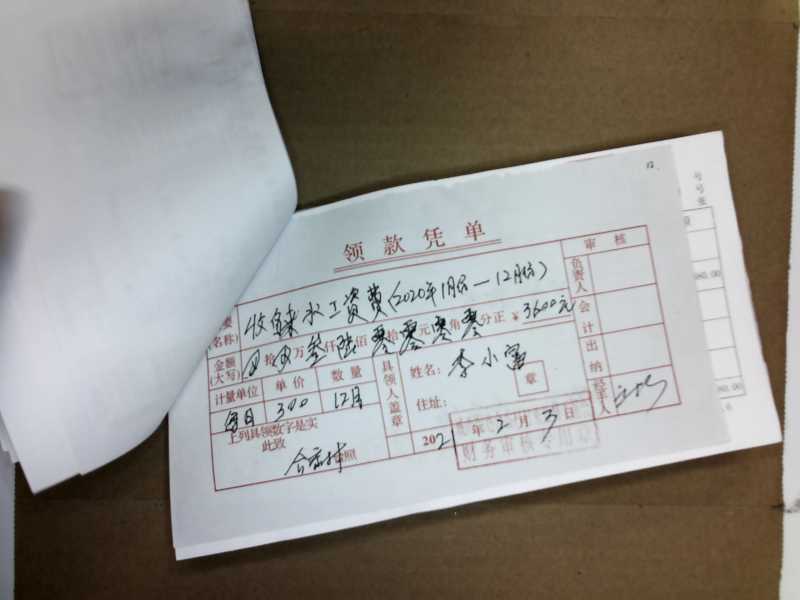 领款凭单
审核
要
名称)
收自来水工资费(2020年1月份—12月份)
负责人
金额
(大写)
拾万叁仟陆佰零拾零元零角零分正 ¥3600元
会计
计量单位 单价 数量
每月 300 12月
具领人盖章
姓名: 李小富
章
住址:
出纳
经手人
上列具领数字是实
此致
照
2021年2月3日
财务审核专用章